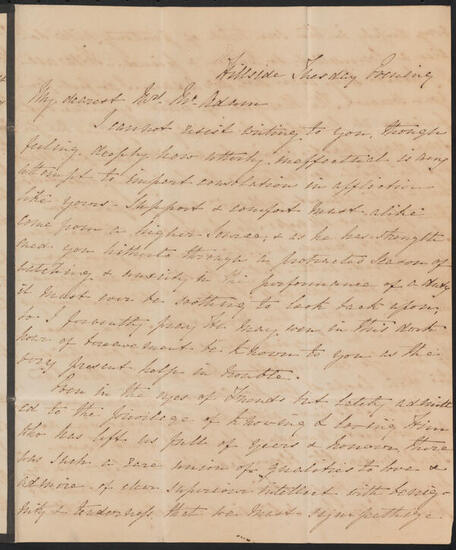 Hillside Tuesday Evening
My dearest Mrs. McAdam
I cannot resist writing to you, though
feeling deeply how utterly ineffectual is any
attempt to impart consolation in affliction
like yours - Support & comfort must alike
come from a higher Source, & as he has strength
ened you hitherto through a protracted Season of
watching & anxiety in the performance of a duty
it must ever be soothing to look back upon,
so I fervently pray He may, even in this dark
hour of bereavement be known to you as the
very present help in trouble.
Even in the eyes of Friends but lately admitt
ed to the privilege of knowing & loving Him
who has left us full of years & honour, there
was such a rare union of qualities to love &
admire, of clear superior intellect with benig
nity & tenderness that we must sympathize